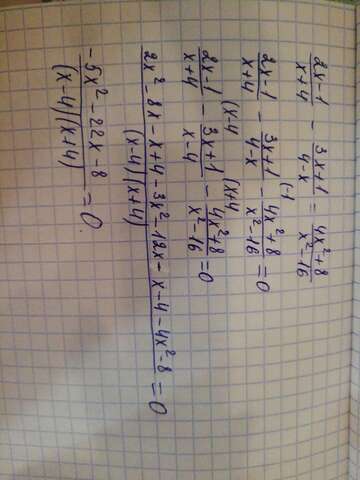 (2x-1)/(x+4) - (3x+1)/(4-x) = (4x²+8)/(x²-16)
(2x-1)/(x+4) - (3x+1)/(4-x) (-1 - (4x²+8)/(x²-16) = 0
(2x-1)/(x+4) (x-4 - (3x+1)/(x-4) (x+4 - (4x²+8)/(x²-16) = 0
(2x²-8x-x+4-3x²-12x-x-4-4x²-8)/((x-4)(x+4)) = 0
(-5x²-22x-8)/((x-4)(x+4)) = 0